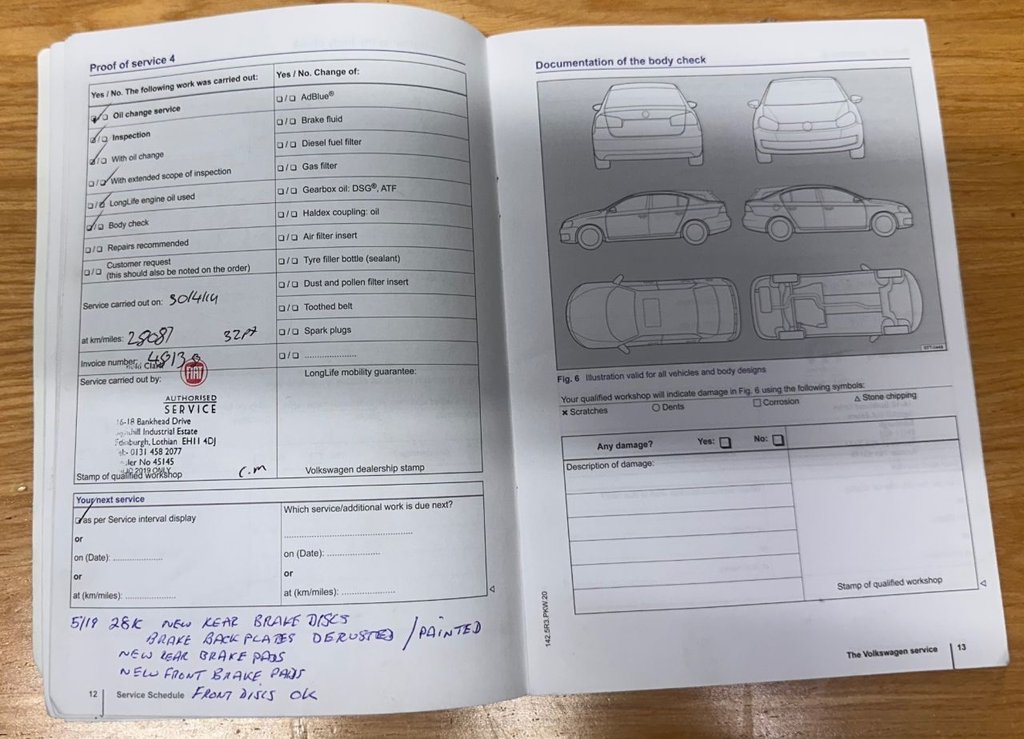 Proof of service 4
Yes / No. The following work was carried out:
☐/☐ Oil change service
☐/☐ Inspection
☐/☐ With oil change
☐/☐ With extended scope of inspection
☐/☐ LongLife engine oil used
☐/☐ Body check
☐/☐ Repairs recommended
☐/☐ Customer request
(this should also be noted on the order)
Service carried out on:
at km/miles: 28087
Invoice number: 4813
Service carried out by:
FIAT
AUTHORISED
SERVICE
16-18 Bankhead Drive
Industrial Estate
Edinburgh, Lothian EH11 4DJ
0131 458 2077
No 45145
2019 ONLY
Stamp of qualified workshop
C.M
Yes / No. Change of:
☐/☐ AdBlue®
☐/☐ Brake fluid
☐/☐ Diesel fuel filter
☐/☐ Gas filter
☐/☐ Gearbox oil: DSG®, ATF
☐/☐ Haldex coupling: oil
☐/☐ Air filter insert
☐/☐ Tyre filler bottle (sealant)
☐/☐ Dust and pollen filter insert
☐/☐ Toothed belt
☐/☐ Spark plugs
☐/☐ ....................
LongLife mobility guarantee:
Volkswagen dealership stamp
Your next service
☐ as per Service interval display
or
on (Date): ..................
or
at (km/miles): ..................
Which service/additional work is due next?
on (Date): ..................
or
at (km/miles): ..................
5/19 28K NEW REAR BRAKE DISCS
BRAKE BACKPLATES DERUSTED / PAINTED
NEW REAR BRAKE PADS
NEW FRONT BRAKE PADS
FRONT DISCS OK
12 Service Schedule
Documentation of the body check
Fig. 6 Illustration valid for all vehicles and body designs
Your qualified workshop will indicate damage in Fig. 6 using the following symbols:
✖ Scratches ○ Dents ☐ Corrosion △ Stone chipping
Any damage? Yes: ☐ No: ☐
Description of damage:
Stamp of qualified workshop
142.5R3.PKW.20
The Volkswagen service 13